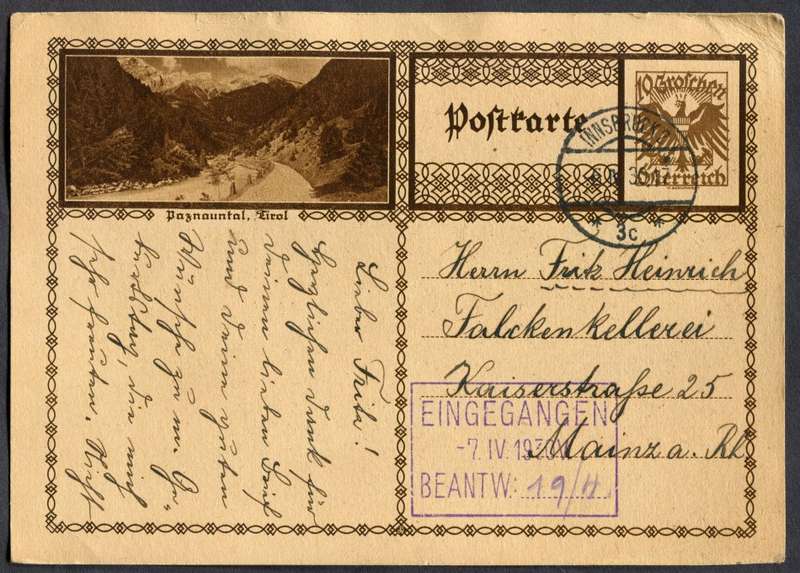 Postkarte
10 Groschen
Österreich
INNSBRUCK
3c
Paznauntal, Tirol
Lieber Fritz!
Herzlichen Dank für
Deinen lieben Brief
und Deine guten
Wünsche zu m. Ge-
burtstag, die mich
sehr freuten.
Herrn Fritz Heinrich
Falckenkellerei
Kaiserstraße 25
Mainz a. Rh
EINGEGANGEN
-7. IV. 193
BEANTW: 19/4.